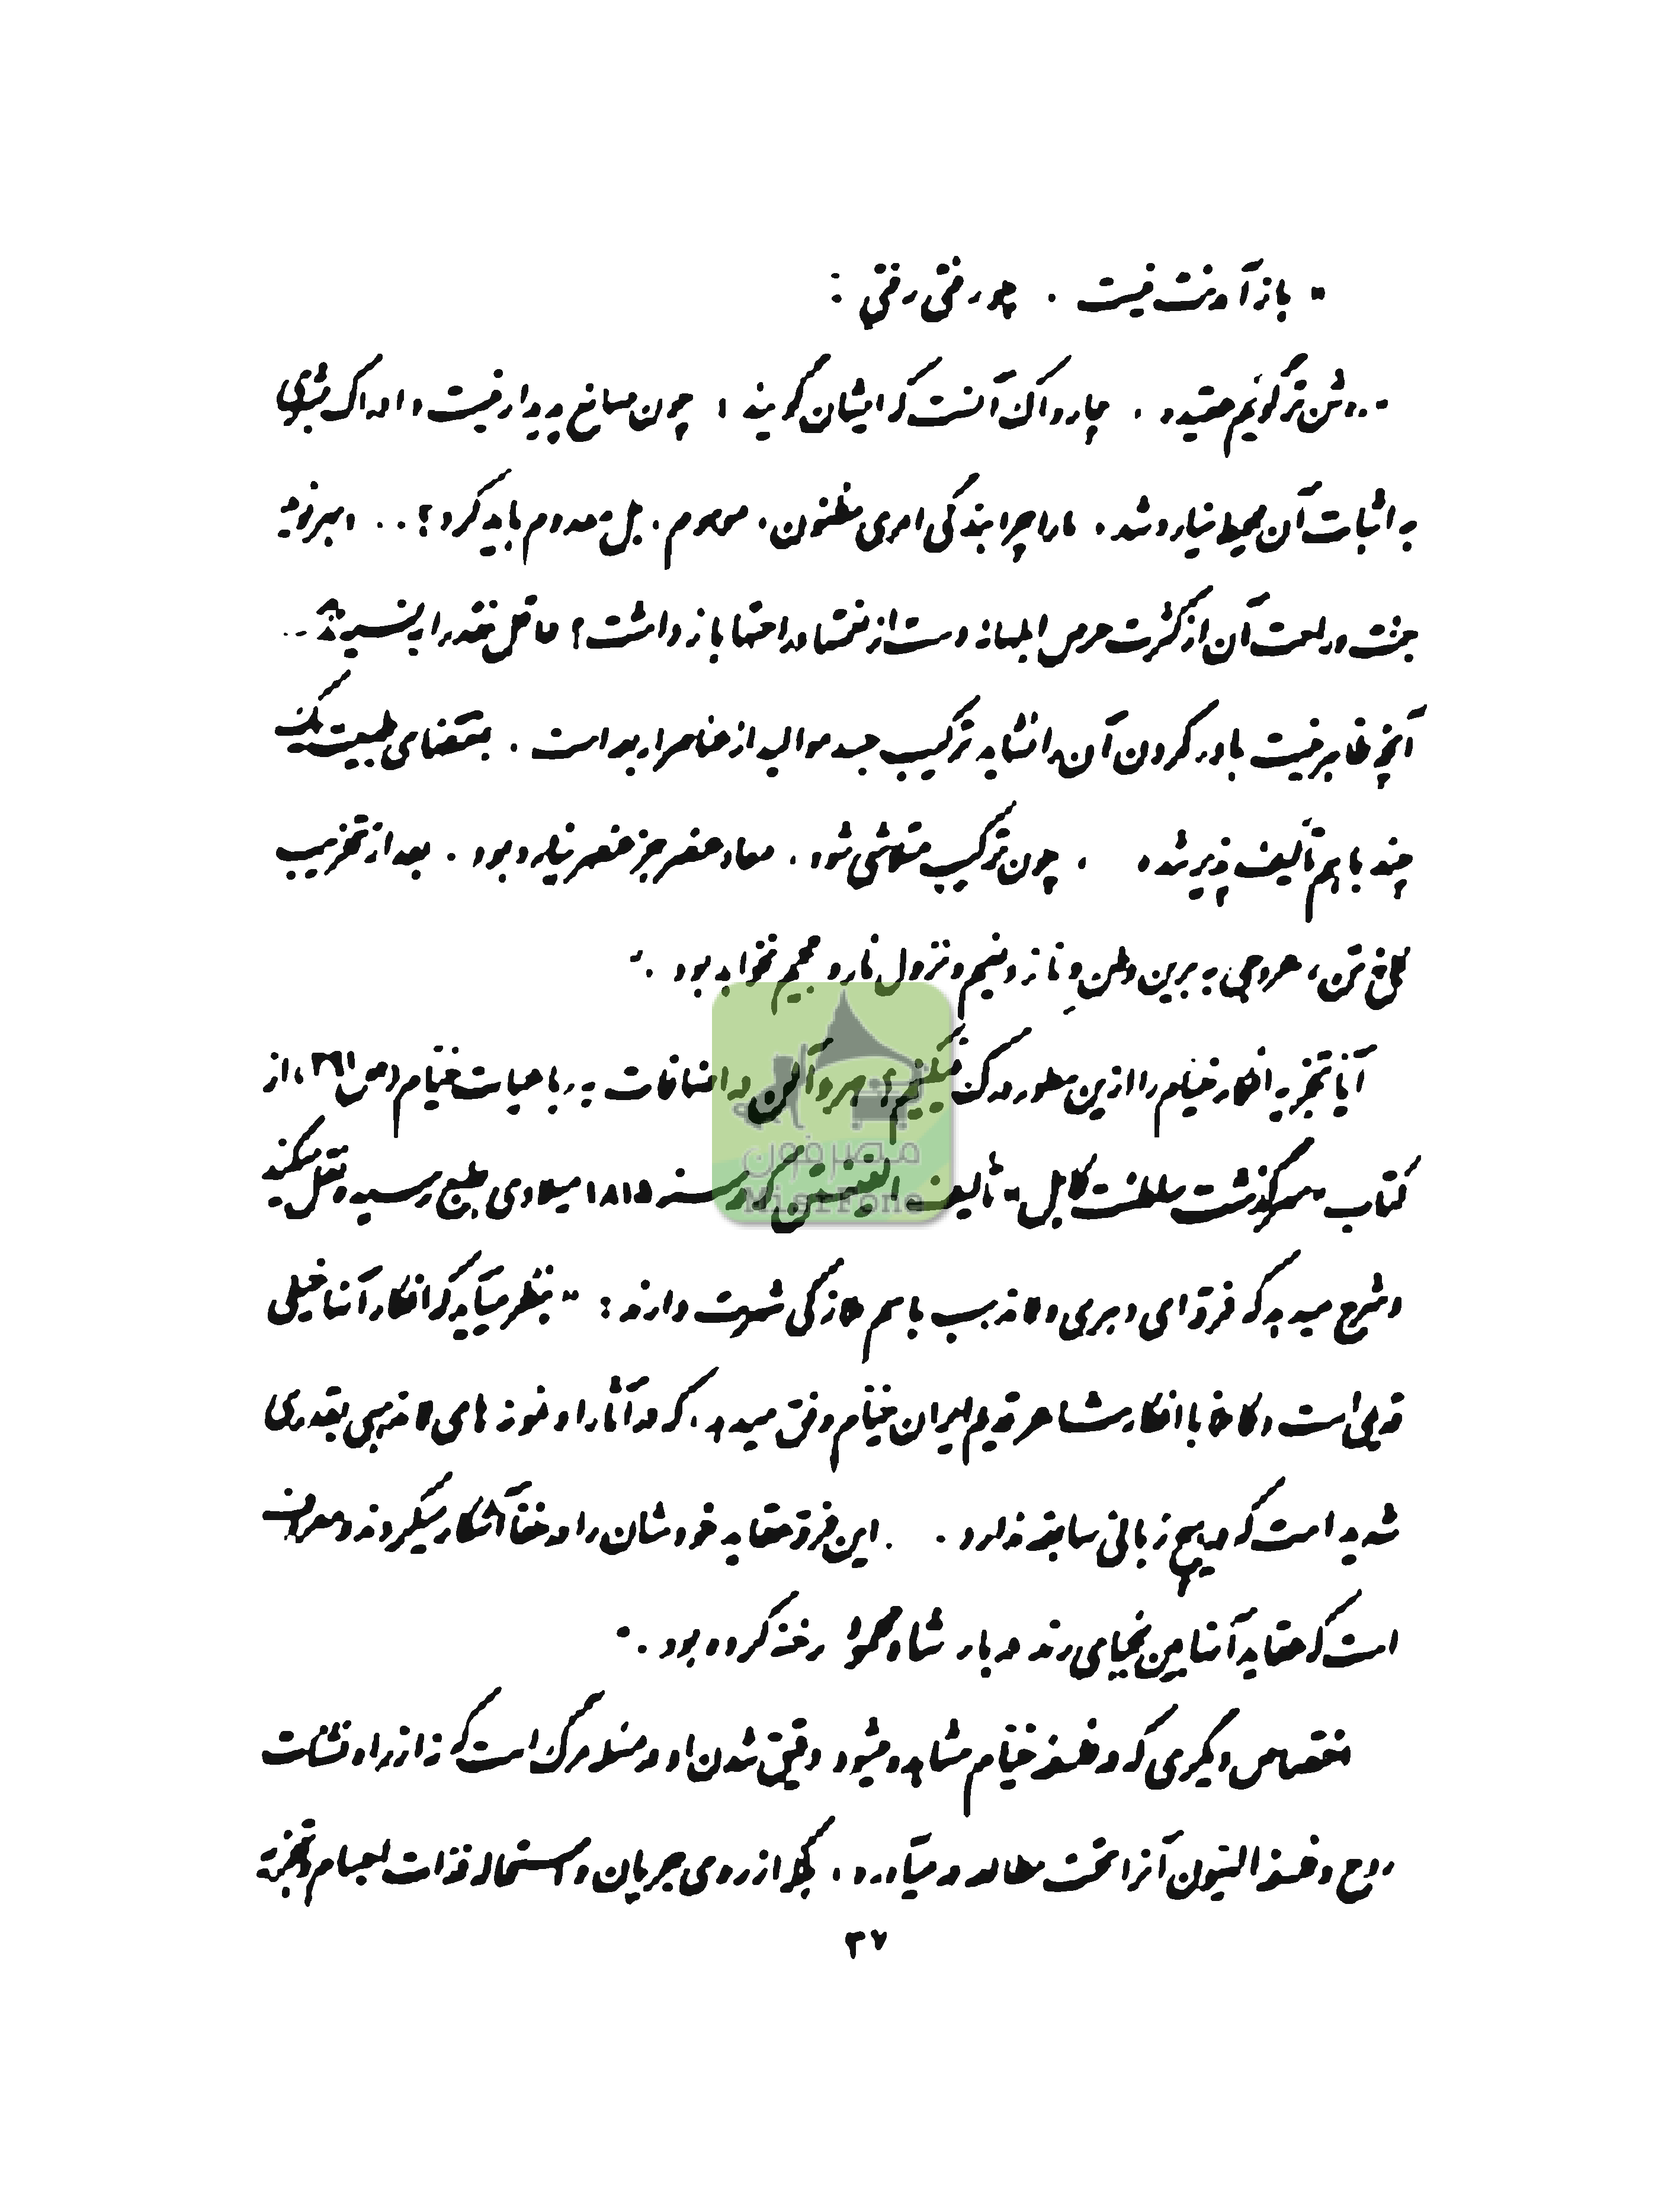 " باز آمدنت نیست . چو رفتی رفتی :
" ... روشن‌تر گوئیم عقیده . چارواک آنست که ایشان گویند : چون صانع پدیدار نیست و ادراک بشری
به اثبات آن محیط نیارد شد . ما را چرا بندگی امری مظنون ، موهوم ، بل معدوم باید کرد ؟ . . و بهر نوید
جنت و راحت آن از کثرت حرص ابلهانه دست از نعمتها و راحتها باز داشت ؟ عاقل نقد را به نسیه ندهد ...
آنچه ظاهر نیست باور کردن آن را نشاید ترکیب جسد موالید از عناصر اربعه است . بمقتضای طبیعت یک
چند با هم تألیف پذیر شده . چون ترکیب متلاشی شود ، معاد عنصر جز عنصر نیارد بود . بعد از تخریب
کاخ تن ، عروجی به برین وطن و ناز و نعیم و نزول نار و جحیم نخواهد بود . "
آیا تجزیه افکار خیام را ازین سطور درک نمیکنیم ؟ هرون آلن در اضافات به رباعیات خیام ( ص ۲۹۱ ) ، از
کتاب " سرگذشت سلطنت کابل " تألیف الفینستن که در سنه ۱۸۱۵ میلادی بطبع رسیده نقل میکند
و شرح میدهد که فرقه‌ای دهری و لامذهب باسم ملازکی شهرت دارند : " بنظر میآید که افکار آنها خیلی
قدیمی است و کاملا با افکار شاعر قدیم ایران خیام وفق میدهد ، که در آثار او نمونه های لامذهبی بقدری
شدید است که در هیچ زبانی سابقه ندارد . . این فرقه عقاید خودشان را در خفا آشکار میکردند و معروف
است که عقاید آنها بین نجبای رند دربار شاه محمود رخنه کرده بود . "
اختصاص دیگری که در فلسفه خیام مشاهده میشود دقیق شدن او در مسئله مرگ است که نه از راه نشئات
روح و فلسفه الهیون آنرا تحت مطالعه در میآورد ، بلکه از روی جریان و استحاله ذرات اجسام و تجزیه
۳۷
مصرفون
MisrFone